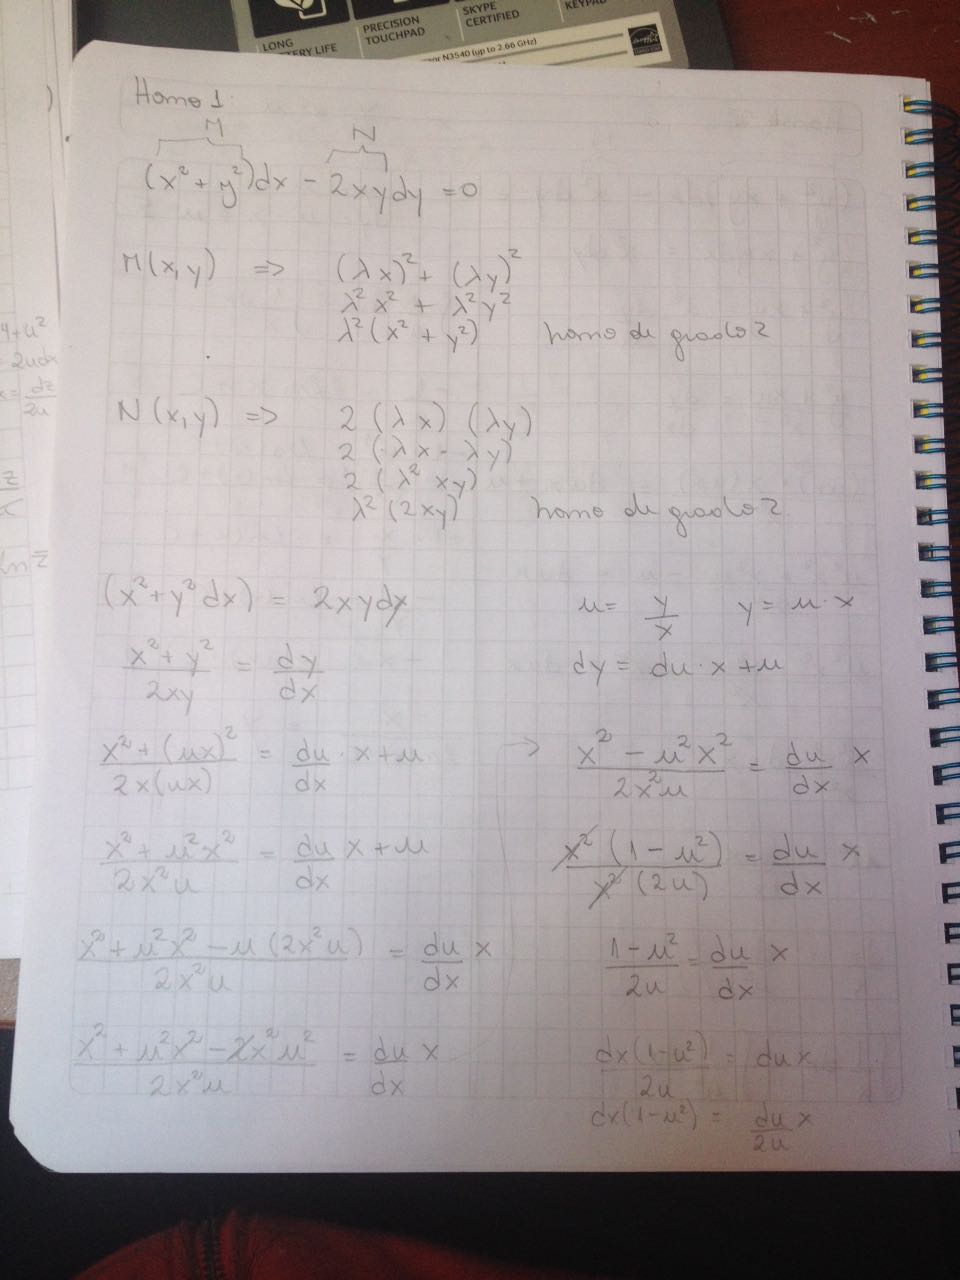 LONG
ERY LIFE
PRECISION
TOUCHPAD
SKYPE
CERTIFIED
KEYPAD
sor N3540 (up to 2.66 GHz)
Homo 1
M
N
(x² + y²)dx - 2xydy = 0
M(x,y) => (λx)² + (λy)²
λ²x² + λ²y²
λ²(x² + y²) homo de grado 2
N(x,y) => 2 (λx) (λy)
2 (λx · λy)
2 (λ² xy)
λ²(2xy) homo de grado 2
(x² + y² dx) = 2xydy
(x² + y²)/(2xy) = dy/dx
(x² + (ux)²)/(2x(ux)) = du/dx · x + u
(x² + u²x²)/(2x²u) = du/dx x + u
(x² + u²x² - u(2x²u))/(2x²u) = du/dx x
(x² + u²x² - 2x²u²)/(2x²u) = du/dx x
u = y/x y = u · x
dy = du · x + u
→ (x² - u²x²)/(2x²u) = du/dx x
(x²(1 - u²))/(x²(2u)) = du/dx x
(1 - u²)/(2u) = du/dx x
(dx(1-u²))/(2u) = du x
dx(1-u²) = du/2u x
4+u²
= 2udx
dz
2u
z